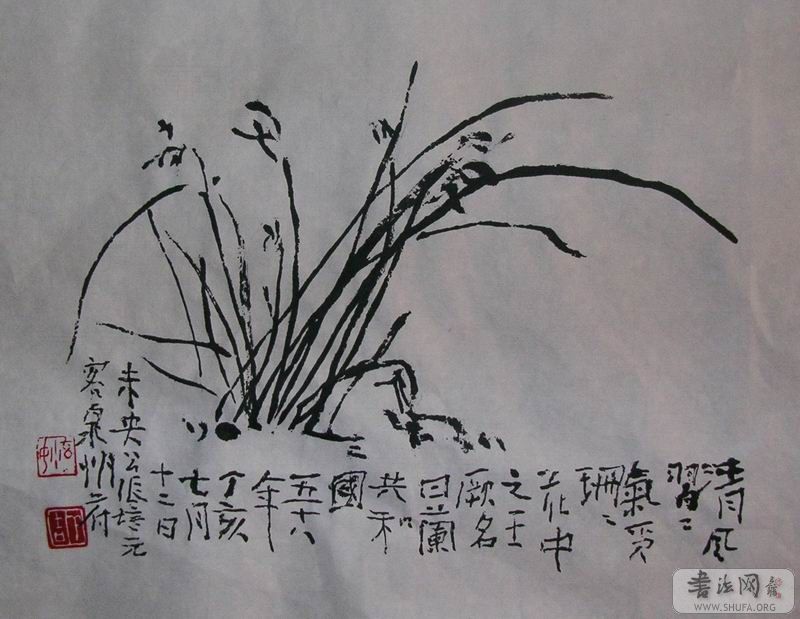 清风
習〻
氣
珊〻
花中
之王
厥名
曰蘭
共和
國
五十八
年
丁亥
七月
十二日
未央公張培元
客泉州府
書法网
WWW.SHUFA.ORG